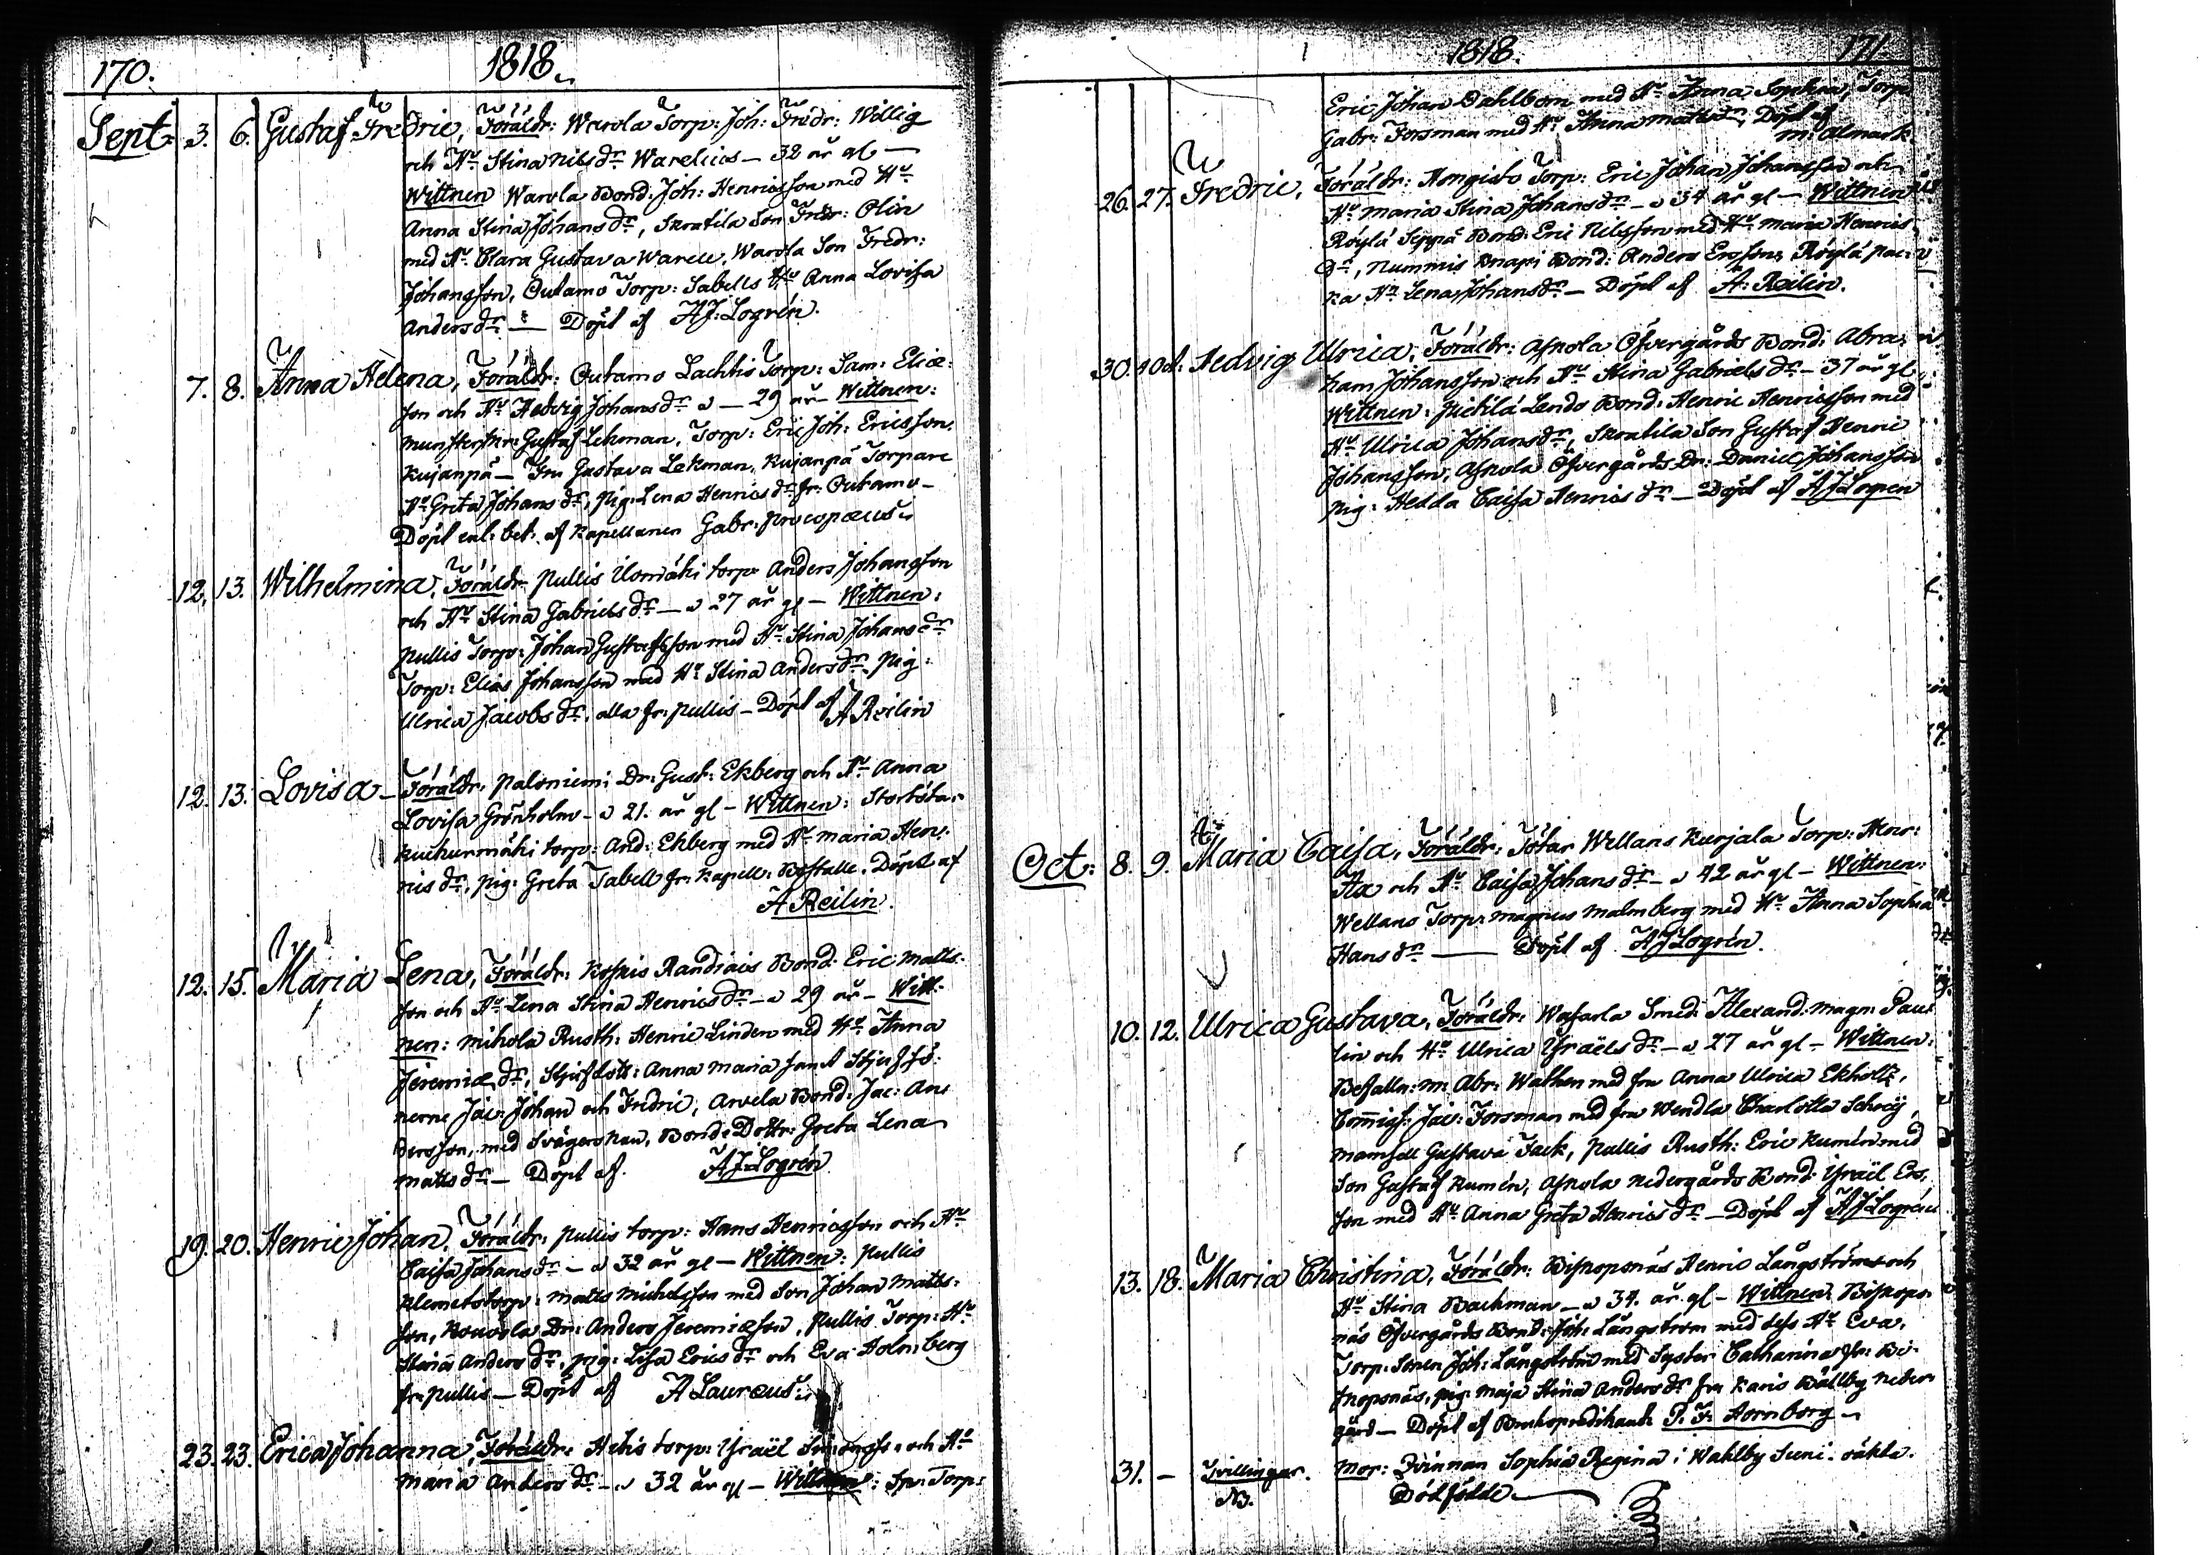 170. 1818.
Sept: 3. 6. Gustaf Fredric, Föräldr: Warola Torp: Joh: Fredr: Willig
och Hu Stina Nils dr Warelius — 32 år gl —
Wittnen Warola Bond: Joh: Henricsson med Hu
Anna Stina Johans dr, Skratila Son Fredr: Olin
med Hu Clara Gustava Warell, Warola Son Fredr:
Johansson, Outamo Torp: Sabells Hu Anna Lovisa
Anders dr — Döpt af AJ: Logrén.
7. 8. Anna Helena, Föräldr: Outamo Lachtis Torp: Sam: Eliæ:
son och Hu Hedvig Johans dr — 29 år — Wittnen:
Munsterskr: Gustaf Lekman, Torp: Eric Joh: Ericsson,
Kujanpä — Fru Gustava Lekman, Kujanpä Torpare
Hu Greta Johans dr, pig: Lena Henrics dr fr: Outamo —
Döpt enl: bet: af Kapellanen Gabr: Procopæus.
12. 13. Wilhelmina, Föräldr: Pullis Uomäki torp: Anders Johansson
och Hu Stina Gabriels dr — 27 år gl — Wittnen:
Pullis Torp: Johan Gustafsson med Hu Stina Johans dr
Torp: Elias Johansson med Hu Stina Anders dr, pig:
Ulrica Jacobs dr, alla fr: Pullis — Döpt af A Reilin
12. 13. Lovisa — Föräldr: Paloniemi Dr: Gust: Ekberg och Hu Anna
Lovisa Grönholm — 21. år gl — Wittnen: Stortötar
Kuckurmäki torp: And: Ekberg med Hu Maria Hen:
rics dr, pig: Greta Tabell fr: Kapell: Bostelle, Döpt af
A Reilin.
12. 15. Maria Lena, Föräldr: Koskis Randiais Bond: Eric Matts:
son och Hu Lena Stina Henrics dr — 29 år — Witt:
nen: Mikola Rusth: Henric Linden med Hu Anna
Jeremiæ dr, Stjufdott: Anna Maria samt Stjufsö:
nerne Jac: Johan och Fredric, Arvela Bond: Jac: An:
dersson, med Svägerskan, Bonde Dottr: Greta Lena
Matts dr — Döpt af AJ: Logrén
19. 20. Henric Johan, Föräldr: Pullis torp: Hans Henricsson och Hu
Caisa Johans dr — 32 år gl — Wittnen: Pullis
Klemets torp: Matts Michelsson med Son Johan Matts:
son, Dr: Anders Jeremiæson, Pullis Torp: Hu
Stina Anders dr, pig: Lisa Erics dr och Eva Holmberg
fr: Pullis — Döpt af A Lauræus
23. 23. Erica Johanna, Föräldr: torp: Israël Simonss: och Hu
Maria Anders dr — 32 år gl — Wittnen: Torp:
1818. 171.
Eric Johan Dahlbom med Hu Anna Sophia, Torp:
Gabr: Forsman med Hu Anna Matts dr, Döpt af
M: Almark.
26. 27. Fredric, Föräldr: Hongisto Torp: Eric Johan Johansson och
Hu Maria Stina Johans dr — 34 år gl — Wittnen
Röylä Seppä Bond: Eric Nilsson med Hu Maria Henrics
dr, Nummis Knapi Bond: Anders Ersson, Röylä
Hu Lena Johans dr — Döpt af A: Reilin.
30. 4 Oct: Hedvig Ulrica, Föräldr: Asnola Öfvergårds Bond: Abra:
ham Johansson och Hu Stina Gabriels dr — 37 år gl
Wittnen: Pickilä Lendo Bond: Henric Henricsson med
Hu Ulrica Johans dr, Skratila Son Gustaf Henric
Johansson, Asnola Öfvergårds Dr: Daniel Johansson
pig: Hedda Caisa Henrics dr — Döpt af AJ Logren
Oct: 8. 9. Maria Caisa, Föräldr: Tötar Wellans Kurjala Torp: Henr:
Ax och Hu Caisa Johans dr — 42 år gl — Wittnen:
Wellans Torp: Magnus Malmberg med Hu Anna Sophia
Hans dr — Döpt af AJ Logrén.
10. 12. Ulrica Gustava, Föräldr: Wasarla Smed: Alexand: Magn: Pau:
lin och Hu Ulrica Israëls dr — 27 år gl — Wittnen:
Befalln: m: Abr: Wathen med fru Anna Ulrica Ekholtz,
Com̄iss: Jac: Forsman med fru Wendla Charlotta Schröij,
Mamsell Gustava Fack, Pullis Rusth: Eric Kumén med
Son Gustaf Kumén, Asnola Nedergårds Bond: Israël Ers:
son med Hu Anna Greta Henrics dr — Döpt af AJ Logrén
13. 18. Maria Christina, Föräldr: Biskopsnäs Henric Långström och
Hu Stina Backman — 34. år gl — Wittnen, Biskops:
näs Öfvergårds Bond: Joh: Långström med dess Hu Eva,
Torp: Sonen Joh: Långström med Syster Catharina fr: Bi:
skopsnäs, pig: Maja Stina Anders dr fr: Karis Bällby Neder
gård — Döpt af Brukspredikant P. F. Hornborg —
31. — Tvillingar. Mor: Qvinnan Sophia Regina i Wahlby
N3. Dödfödde —